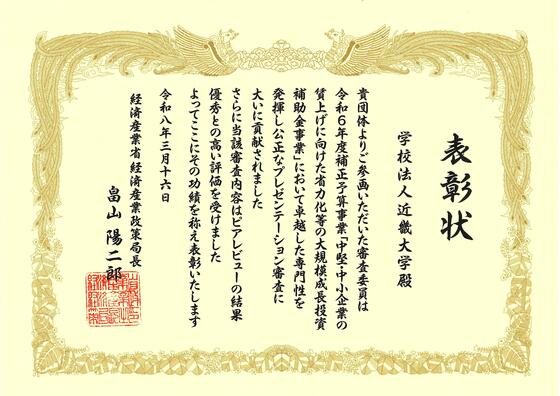 表彰状
学校法人近畿大学殿
貴団体よりご参画いただいた審査委員は
令和6年度補正予算事業「中堅・中小企業の
賃上げに向けた省力化等の大規模成長投資
補助金事業」において卓越した専門性を
発揮し公正なプレゼンテーション審査に
大いに貢献されました
さらに当該審査内容はピアレビューの結果
優秀との高い評価を受けました
よってここにその功績を称え表彰いたします
令和八年三月十六日
経済産業省経済産業政策局長
畠山陽二郎